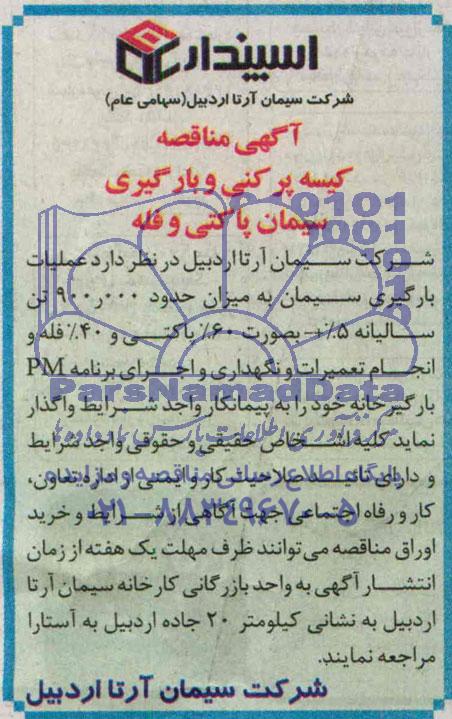 اسپندار
شرکت سیمان آرتا اردبیل(سهامی عام)
آگهی مناقصه
کیسه پر کنی و بار گیری
سیمان پاکتی و فله
شرکت سیمان آرتا اردبیل در نظر دارد عملیات
بارگیری سیمان به میزان حدود ۹۰۰٫۰۰۰ تن
سالیانه ۵٪+- بصورت ۶۰٪ پاکتی و ۴۰٪ فله و
انجام تعمیرات و نگهداری و اجرای برنامه PM
بارگیرخانه خود را به پیمانکار واجد شرایط واگذار
نماید کلیه اشخاص حقیقی و حقوقی واجد شرایط
و دارای تائید صلاحیت کار و ایمنی از اداره تعاون،
کار و رفاه اجتماعی جهت آگاهی از شرایط و خرید
اوراق مناقصه می‌توانند ظرف مهلت یک هفته از زمان
انتشار آگهی به واحد بازرگانی کارخانه سیمان آرتا
اردبیل به نشانی کیلومتر ۲۰ جاده اردبیل به آستارا
مراجعه نمایند.
شرکت سیمان آرتا اردبیل
ParsNamadData
پایگاه اطلاع رسانی مناقصه و مزایده
۰۲۱-۸۸۳۴۹۶۷۰-۵